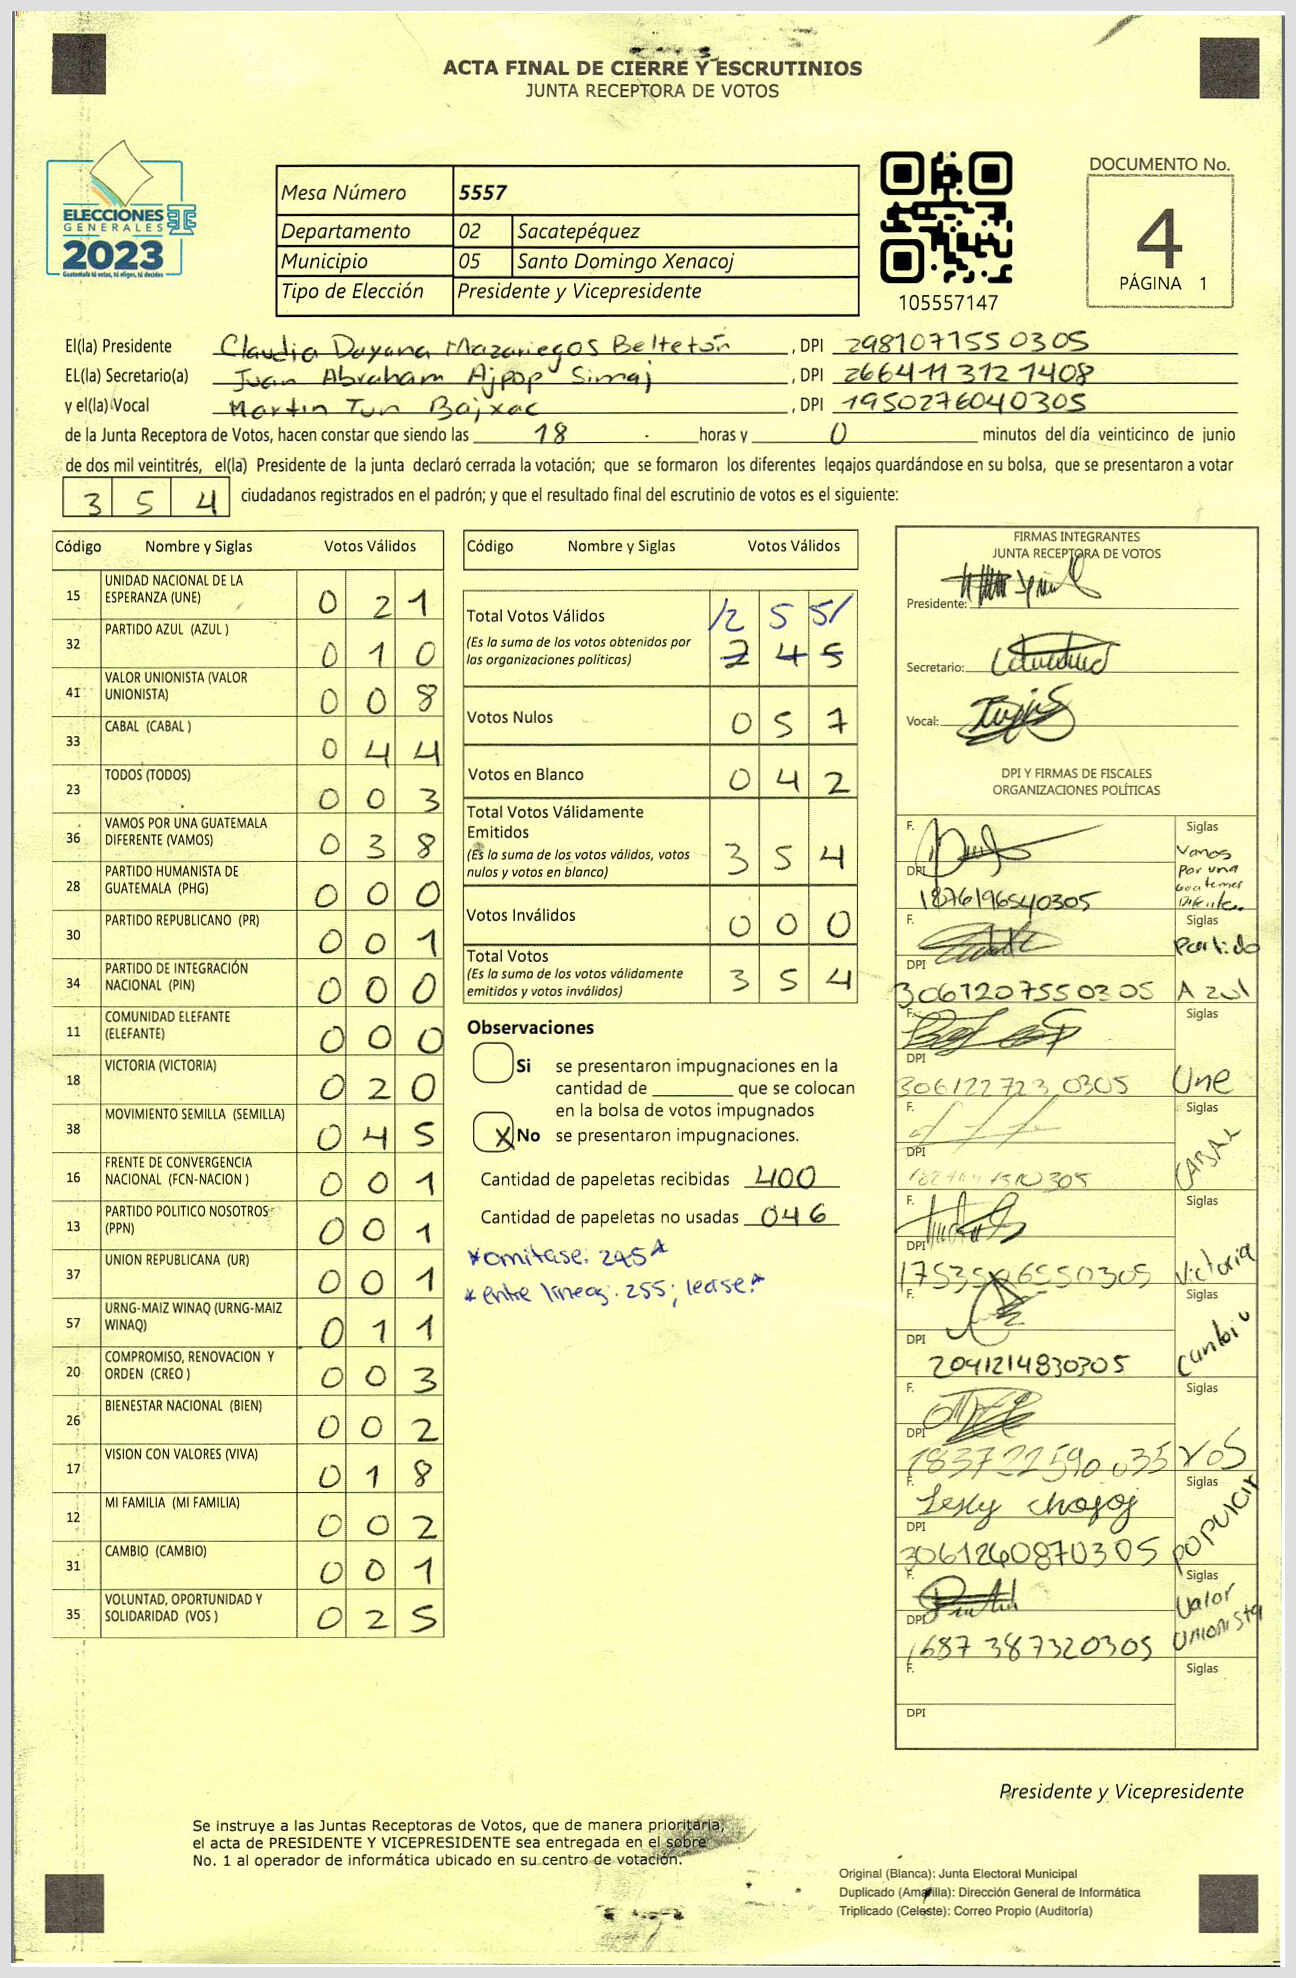 ACTA FINAL DE CIERRE Y ESCRUTINIOS
JUNTA RECEPTORA DE VOTOS
ELECCIONES
GENERALES
2023
Guatemala tú votas, tú eliges, tú decides
Mesa Número 5557
Departamento 02 Sacatepéquez
Municipio 05 Santo Domingo Xenacoj
Tipo de Elección Presidente y Vicepresidente
105557147
DOCUMENTO No.
4
PÁGINA 1
El(la) Presidente Claudia Dayana Mazariegos Beltetón, DPI 2981071550305
EL(la) Secretario(a) Juan Abraham Ajpop Simaj, DPI 2664113121408
y el(la) Vocal Martin Tun Bajxac, DPI 1950276040305
de la Junta Receptora de Votos, hacen constar que siendo las 18 horas y 0 minutos del día veinticinco de junio
de dos mil veintitrés, el(la) Presidente de la junta declaró cerrada la votación; que se formaron los diferentes legajos guardándose en su bolsa, que se presentaron a votar
3 5 4 ciudadanos registrados en el padrón; y que el resultado final del escrutinio de votos es el siguiente:
Código Nombre y Siglas Votos Válidos
15 UNIDAD NACIONAL DE LA ESPERANZA (UNE) 0 2 1
32 PARTIDO AZUL (AZUL ) 0 1 0
41 VALOR UNIONISTA (VALOR UNIONISTA) 0 0 8
33 CABAL (CABAL ) 0 4 4
23 TODOS (TODOS) 0 0 3
36 VAMOS POR UNA GUATEMALA DIFERENTE (VAMOS) 0 3 8
28 PARTIDO HUMANISTA DE GUATEMALA (PHG) 0 0 0
30 PARTIDO REPUBLICANO (PR) 0 0 1
34 PARTIDO DE INTEGRACIÓN NACIONAL (PIN) 0 0 0
11 COMUNIDAD ELEFANTE (ELEFANTE) 0 0 0
18 VICTORIA (VICTORIA) 0 2 0
38 MOVIMIENTO SEMILLA (SEMILLA) 0 4 5
16 FRENTE DE CONVERGENCIA NACIONAL (FCN-NACION ) 0 0 1
13 PARTIDO POLITICO NOSOTROS (PPN) 0 0 1
37 UNION REPUBLICANA (UR) 0 0 1
57 URNG-MAIZ WINAQ (URNG-MAIZ WINAQ) 0 1 1
20 COMPROMISO, RENOVACION Y ORDEN (CREO ) 0 0 3
26 BIENESTAR NACIONAL (BIEN) 0 0 2
17 VISION CON VALORES (VIVA) 0 1 8
12 MI FAMILIA (MI FAMILIA) 0 0 2
31 CAMBIO (CAMBIO) 0 0 1
35 VOLUNTAD, OPORTUNIDAD Y SOLIDARIDAD (VOS ) 0 2 5
Código Nombre y Siglas Votos Válidos
Total Votos Válidos /2 5 5/
(Es la suma de los votos obtenidos por las organizaciones políticas) 2 4 5
Votos Nulos 0 5 7
Votos en Blanco 0 4 2
Total Votos Válidamente Emitidos
(Es la suma de los votos válidos, votos nulos y votos en blanco) 3 5 4
Votos Inválidos 0 0 0
Total Votos
(Es la suma de los votos válidamente emitidos y votos inválidos) 3 5 4
Observaciones
Si se presentaron impugnaciones en la
cantidad de ________ que se colocan
en la bolsa de votos impugnados
X No se presentaron impugnaciones.
Cantidad de papeletas recibidas 400
Cantidad de papeletas no usadas 046
*omitase. 245*
*entre lineas. 255; lease.*
FIRMAS INTEGRANTES
JUNTA RECEPTORA DE VOTOS
Presidente:
Secretario:
Vocal:
DPI Y FIRMAS DE FISCALES
ORGANIZACIONES POLÍTICAS
F. Siglas
DPI 1876196540305 Vamos Por una
F. Siglas
DPI 3061207550305 Partido Azul
F. Siglas
DPI 3061227230305 Une
F. Siglas
DPI CABAL
F. Siglas
DPI Victoria
F. Siglas
DPI 2041214830305 Cambio
F. Siglas
DPI VOS
F. Lesly Chajaj Siglas
DPI 3061260870305 POPULAR
F. Siglas
DPI 1687387320305 Valor Unionista
F. Siglas
DPI
Presidente y Vicepresidente
Se instruye a las Juntas Receptoras de Votos, que de manera prioritaria,
el acta de PRESIDENTE Y VICEPRESIDENTE sea entregada en el sobre
No. 1 al operador de informática ubicado en su centro de votación.
Original (Blanca): Junta Electoral Municipal
Duplicado (Amarilla): Dirección General de Informática
Triplicado (Celeste): Correo Propio (Auditoría)